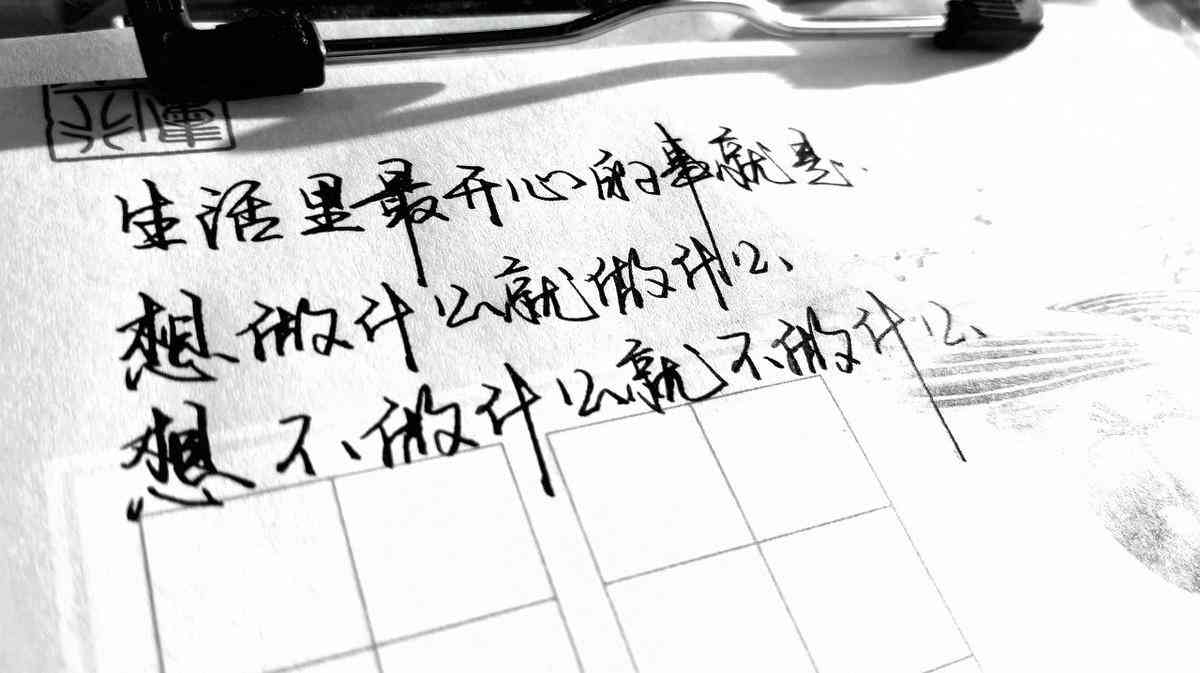 生活里最开心的事就是.
想做什么就做什么、
想不做什么就不做什么、